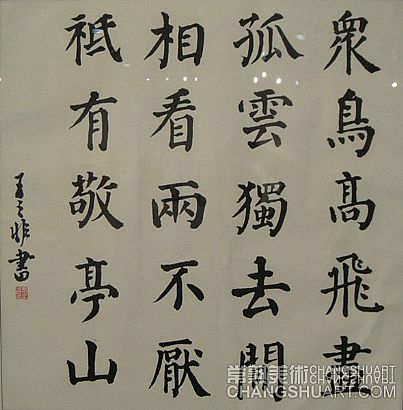 眾鳥高飛盡
孤雲獨去閒
相看兩不厭
祗有敬亭山
書
常熟美術 CHANGSHUART
CHANGSHUART.COM